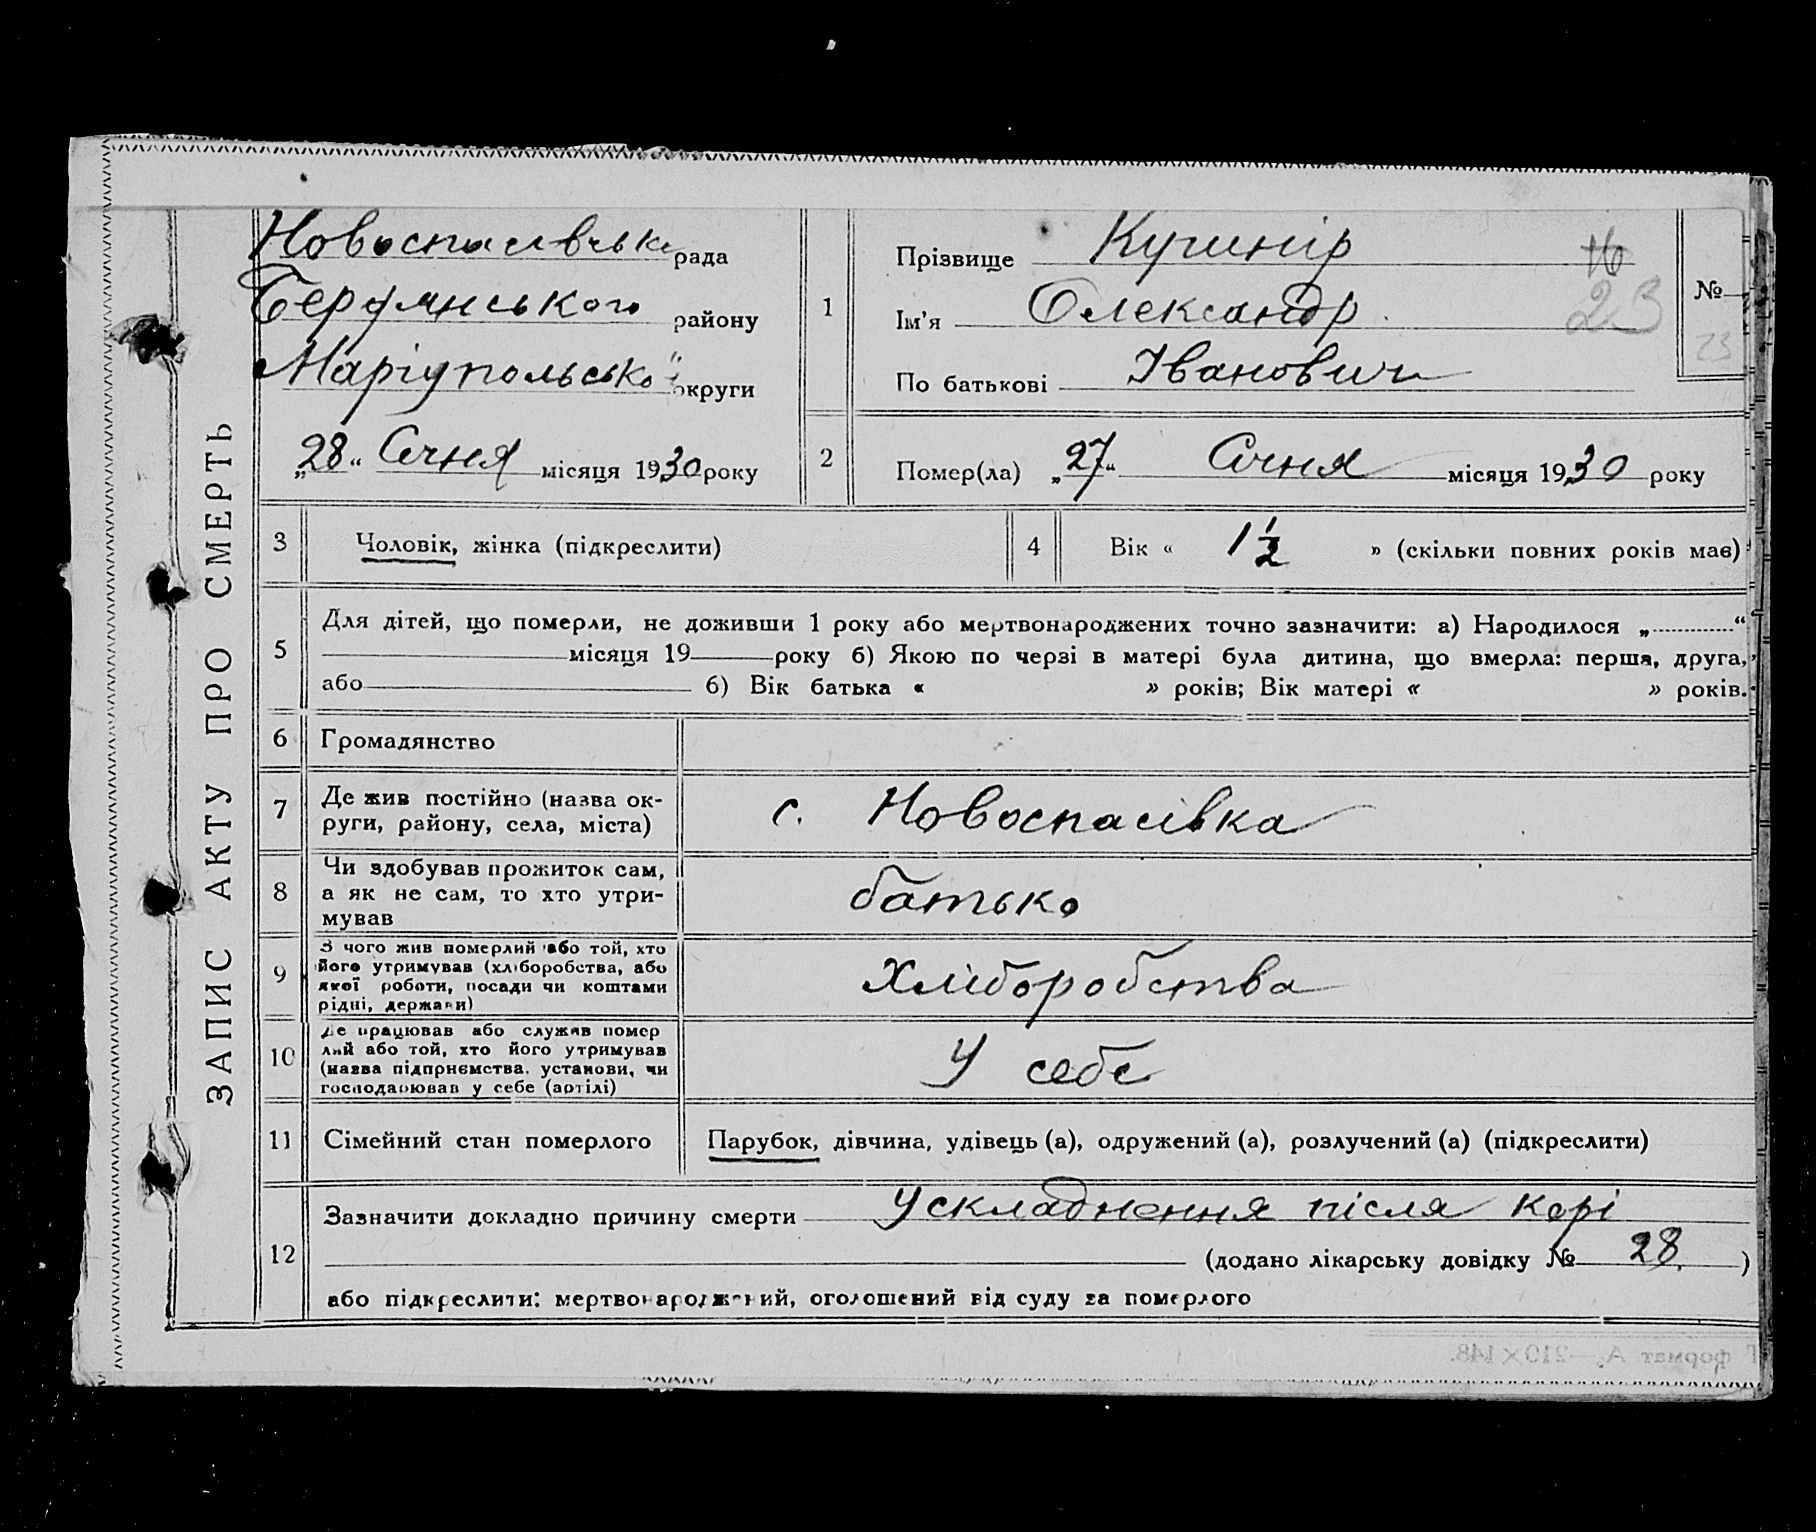 ЗАПИС АКТУ ПРО СМЕРТЬ
Новоспасівська рада
Бердянського району
Маріупольської округи
„28“ Січня місяця 1930 року
1
Прізвище Кушнір
Ім'я Олександр
По батькові Іванович
16
23
№
23
2
Помер(ла) „27“ Січня місяця 1930 року
3 Чоловік, жінка (підкреслити)
4 Вік « 1½ » (скільки повних років має)
5 Для дітей, що померли, не доживши 1 року або мертвонароджених точно зазначити: а) Народилося „ “
місяця 19 року б) Якою по черзі в матері була дитина, що вмерла: перша, друга,
або б) Вік батька « » років; Вік матері « » років.
6 Громадянство
7 Де жив постійно (назва ок-
руги, району, села, міста)
с. Новоспасівка
8 Чи здобував прожиток сам,
а як не сам, то хто утри-
мував
батько
9 З чого жив померлий або той, хто
його утримував (хліборобства, або
якої роботи, посади чи коштами
рідні, держави)
Хліборобства
10 Де працював або служив помер
лий або той, хто його утримував
(назва підприємства, установи, чи
господарював у себе (артілі)
У себе
11 Сімейний стан померлого
Парубок, дівчина, удівець (а), одружений (а), розлучений (а) (підкреслити)
12 Зазначити докладно причину смерти Ускладнення після корі
(додано лікарську довідку № 28. )
або підкреслити: мертвонароджений, оголошений від суду за померлого
формат А₅—210×148.